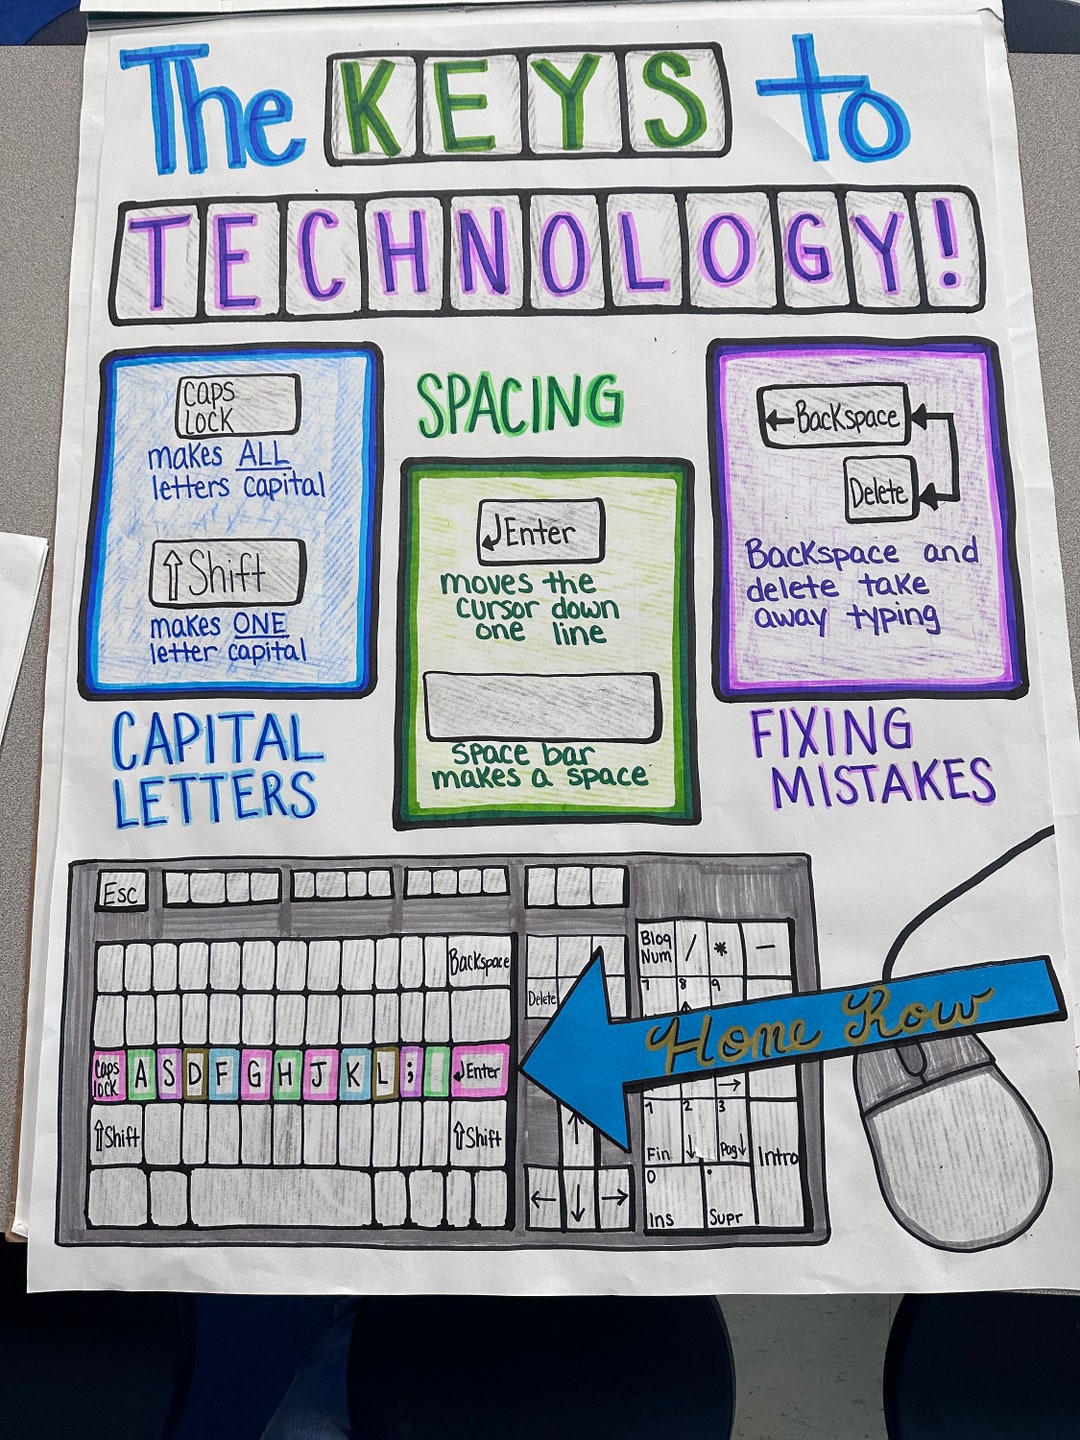 The KEYS to
TECHNOLOGY!
Caps
Lock
makes ALL
letters capital
Shift
makes ONE
letter capital
CAPITAL
LETTERS
SPACING
Enter
moves the
cursor down
one line
space bar
makes a space
← Backspace
Delete
Backspace and
delete take
away typing
FIXING
MISTAKES
Esc
Backspace
Delete
Caps
Lock
A S D F G H J K L ; Enter
Shift
Shift
Bloq
Num
/ * −
7 8 9
Home Row
1 2 3
Fin
Pag
Intro
0 .
Ins
Supr